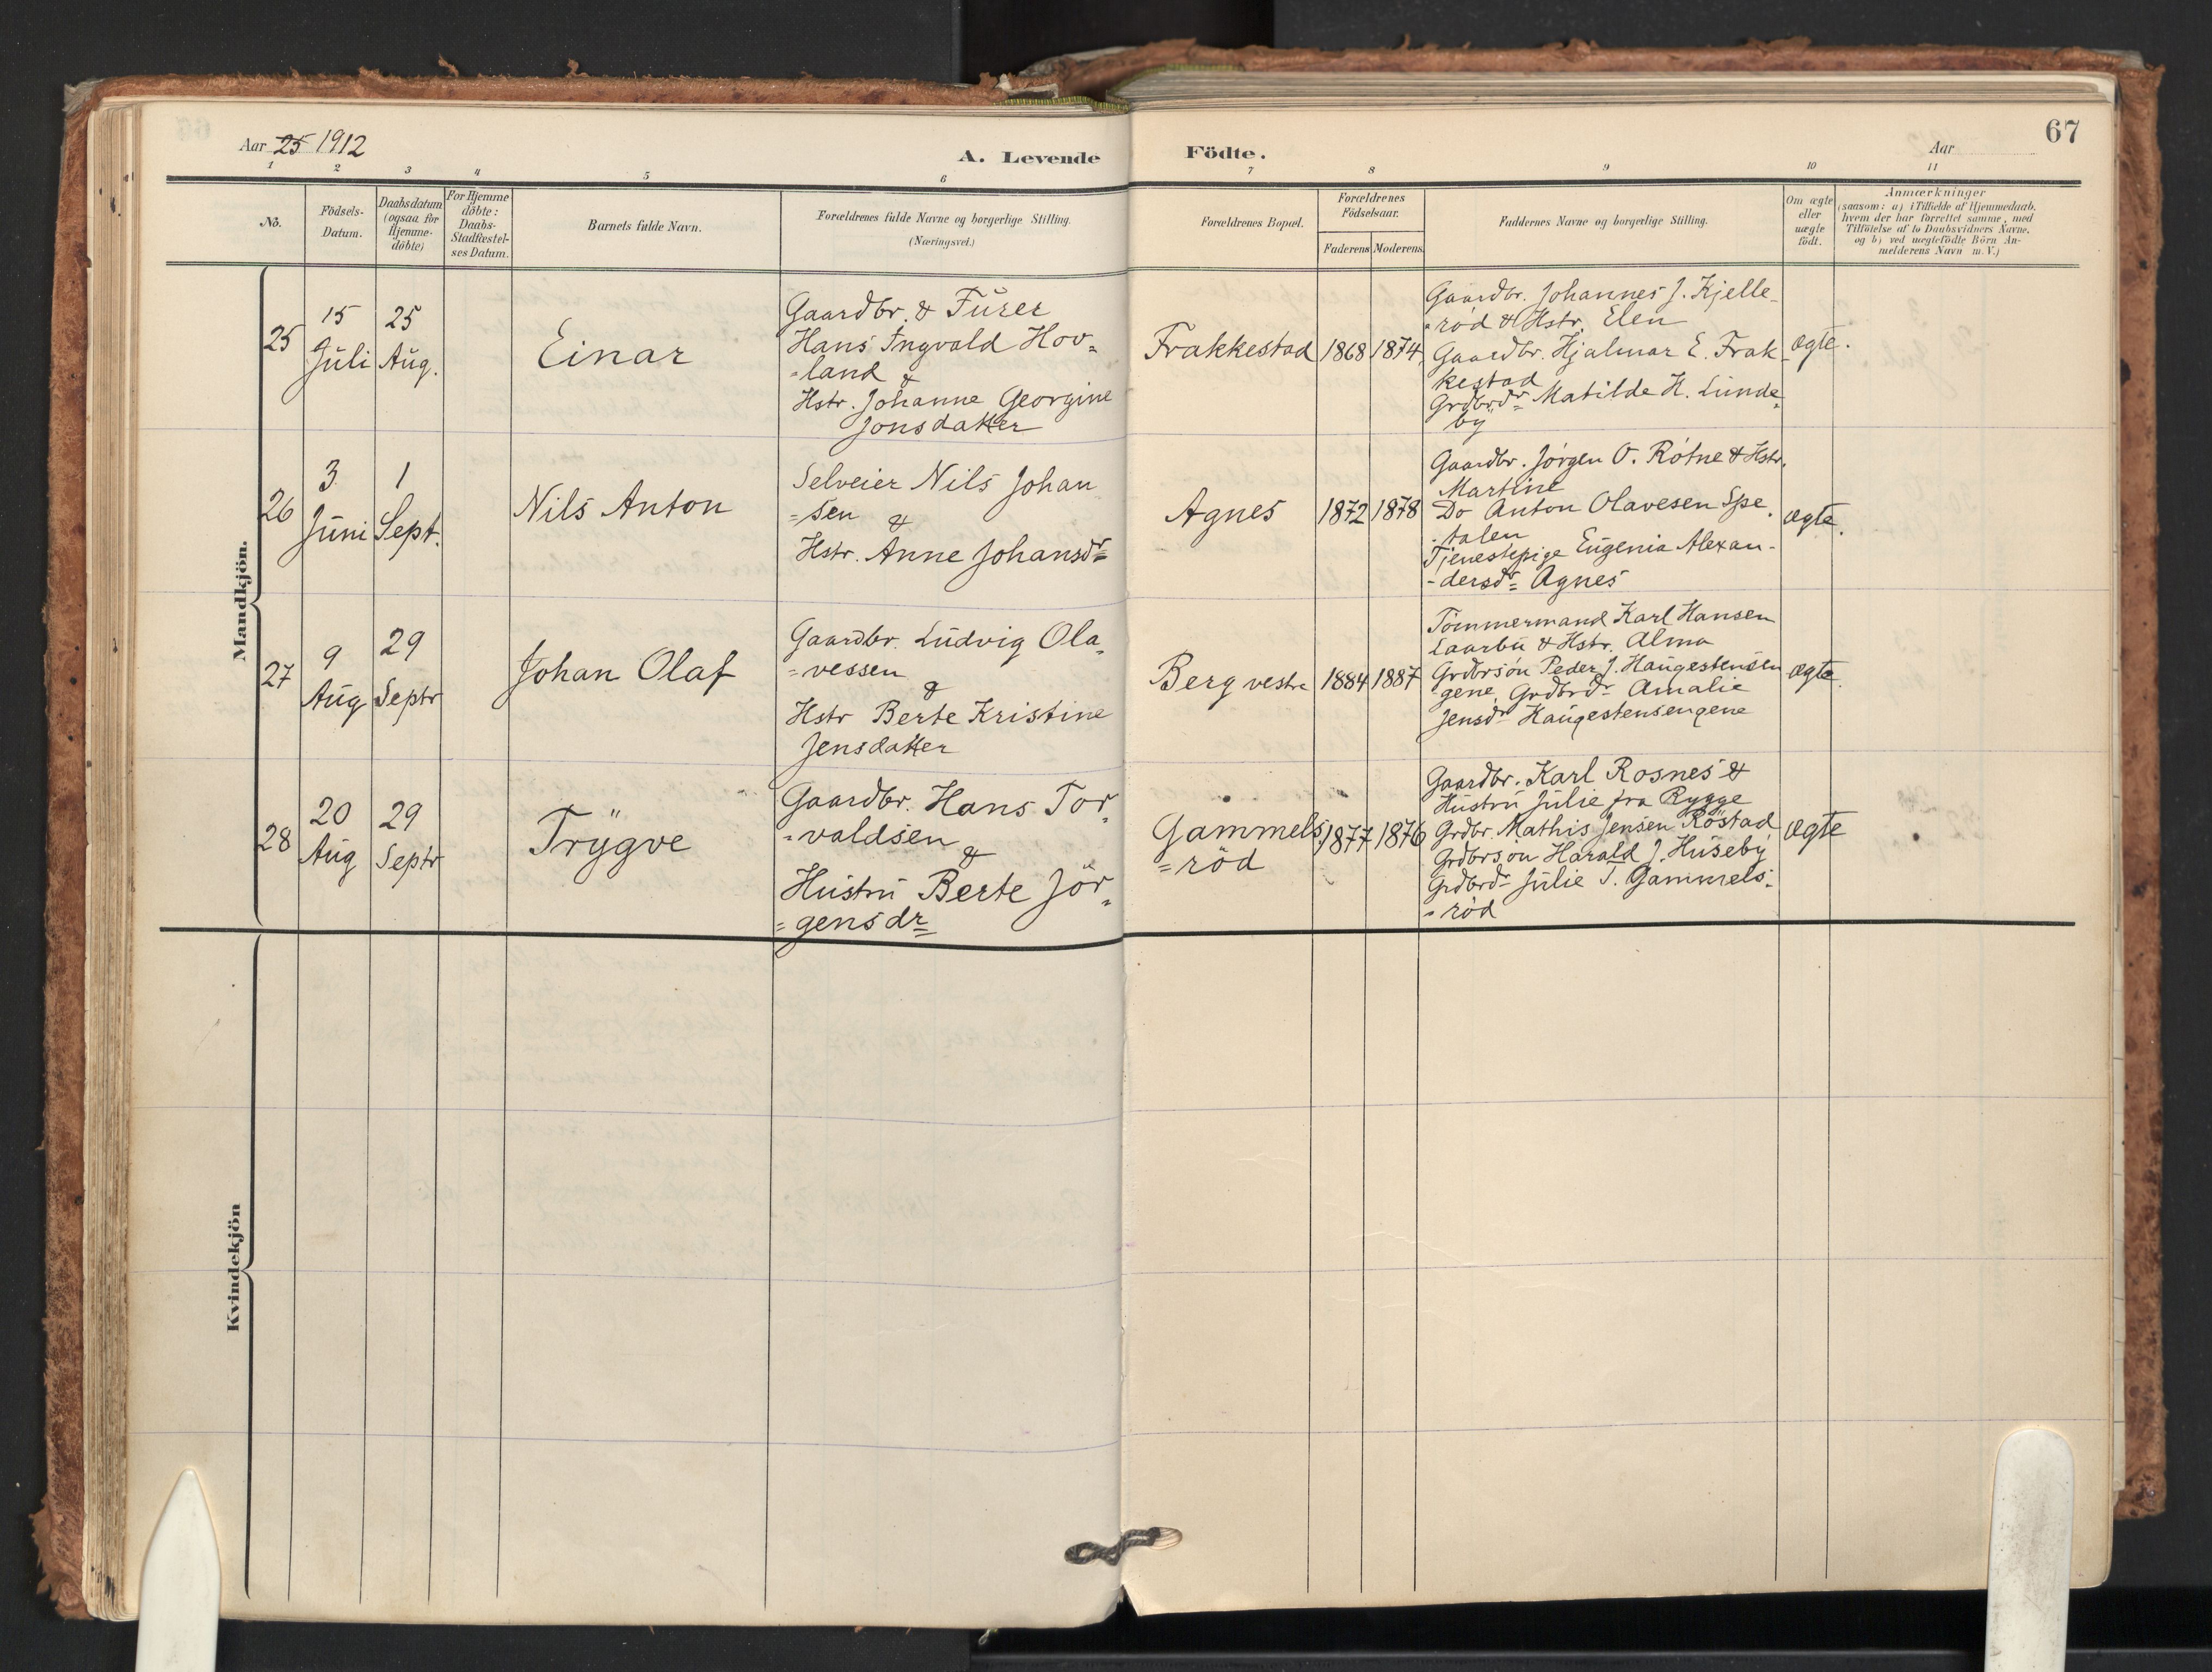 67
Aar 25 1912
A. Levende Födte.
Aar
1 2 3 4 5 6 7 8 9 10 11
No.
Födsels-
Datum.
Daabsdatum
(ogsaa for
Hjemme-
döbte)
For Hjemme
döbte:
Daabs-
Stadfæstel-
ses Datum.
Barnets fulde Navn.
Forældrenes fulde Navne og borgerlige Stilling.
(Næringsvei.)
Forældrenes Bopæl.
Forældrenes
Födselsaar.
Faderens Moderens
Faddernes Navne og borgerlige Stilling.
Om ægte
eller
uægte
födt.
Anmærkninger
(saasom: a) i Tilfælde af Hjemmedaab,
hvem der har forrettet samme, med
Tilföielse af to Daabsvidners Navne,
og b) ved uægtefödte Börn An-
melderens Navn m.V.)
Mandkjön.
25
15
Juli
25
Aug.
Einar
Gaardbr. & Furer
Hans Ingvald Hov=
=land &
Hstr. Johanne Georgine
Jonsdatter
Frakkestad
1868
1874
Gaardbr. Johannes J. Kjelle-
röd & Hstr. Elen
Gaardbr. Hjalmar E. Frak-
kestad
Grdbrdr Matilde H. Lunde=
by
ægte.
26
3
Juni
1
Sept.
Nils Anton
Selveier Nils Johan
=sen &
Hstr. Anne Johansdr
Agnes
1872
1878
Gaardbr. Jörgen O. Rötne & Hstr.
Martine
Do Anton Olavesen Spe
talen
Tjenestepige Eugenia Alexan-
-dersdr Agnes
ægte.
27
9
Aug
29
Septr
Johan Olaf
Gaardbr. Ludvig Ola=
=vessen
&
Hstr Berte Kristine
Jensdatter
Berg vestre
1884
1887
Tömmermand Karl Hansen
Laarbu & Hstr. Alma
Grdbrsön Peder J. Haugestensen
gene, Grdbrdr Amalie
Jensdr Haugestensengene
ægte.
28
20
Aug
29
Septr
Trygve
Gaardbr. Hans Tor=
=valdsen
&
Hustru Berte Jör=
=gensdr
Gammels=
=röd
1877
1876
Gaardbr. Karl Rosnes &
Hustru Julie fra Rygge
Grdbr. Mathis Jensen Röstad
Grdbrsön Harald J. Huseby
Grdbrdr Julie T. Gammels=
=röd
ægte
Kvindekjön